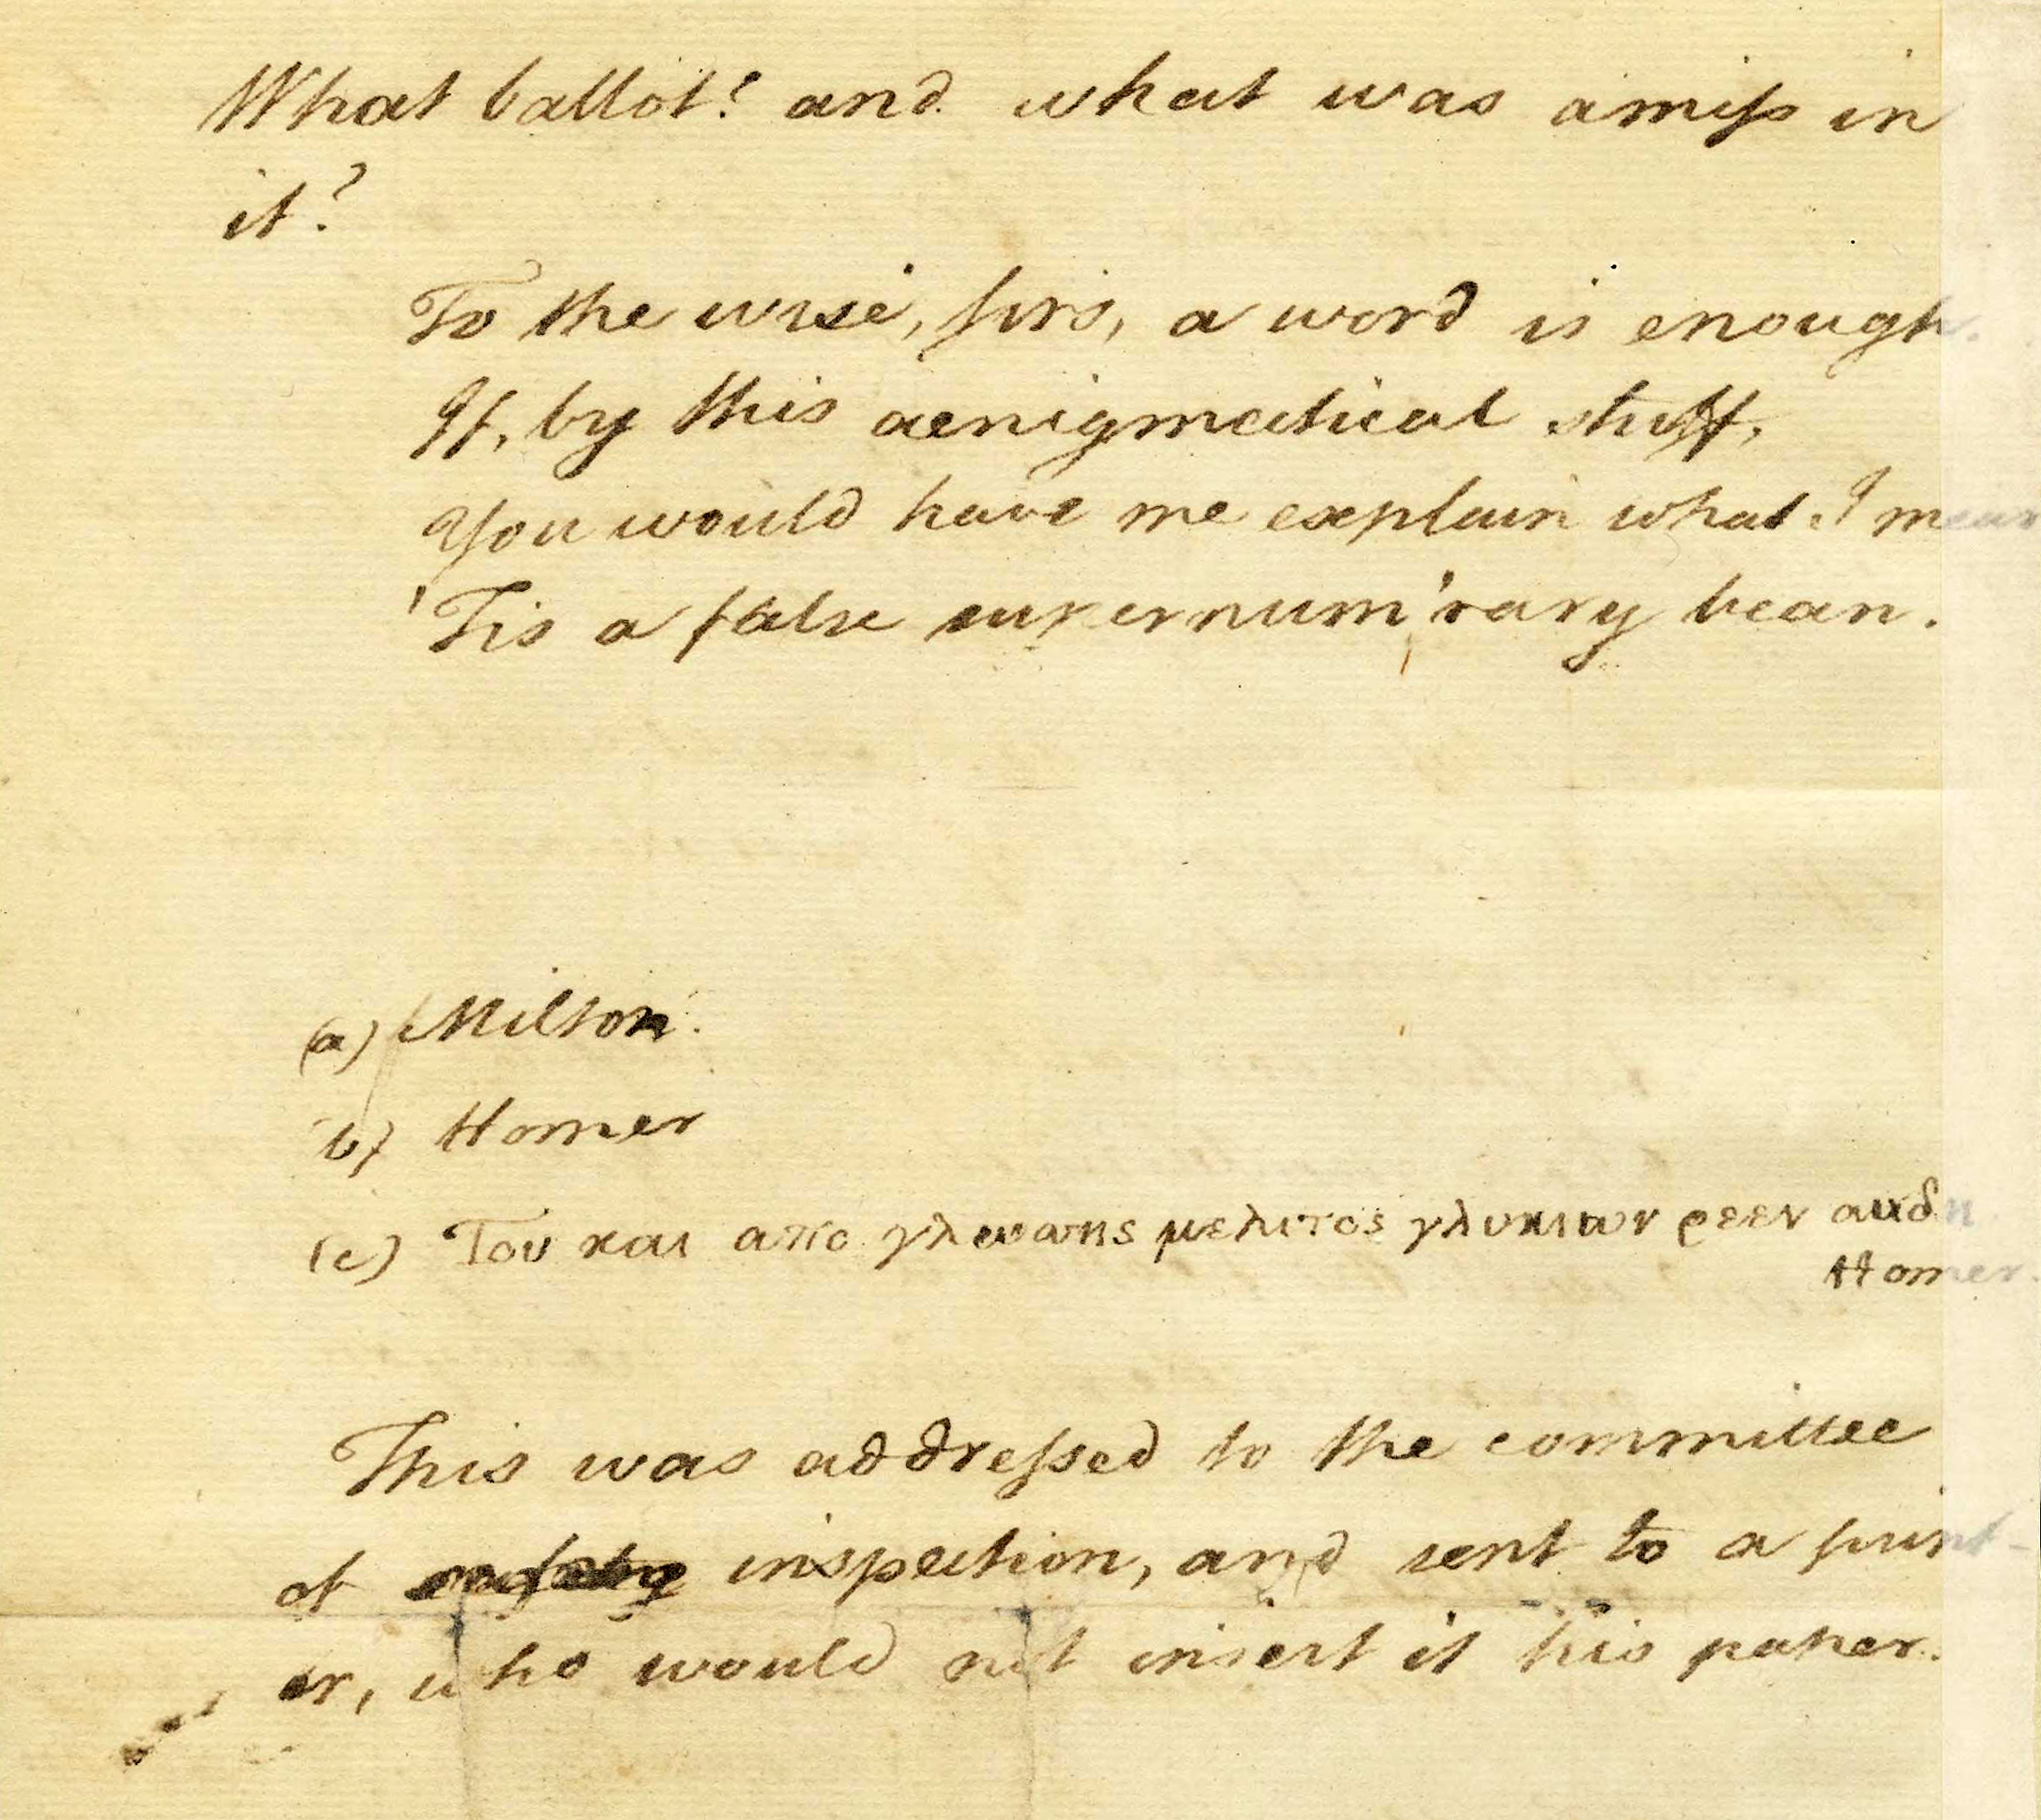 What ballot? and what was amiss in
it?
To the wise, sirs, a word is enough.
If, by this aenigmatical stuff,
You would have me explain what I mean
'Tis a false supernum'rary bean.
(a) Milton.
(b) Homer
(c) Του και απο γλωσσης μελιτος γλυκιων ρεεν αυδη
Homer.
This was addressed to the committee
of inspection, and sent to a print-
er, who would not insert it his paper.